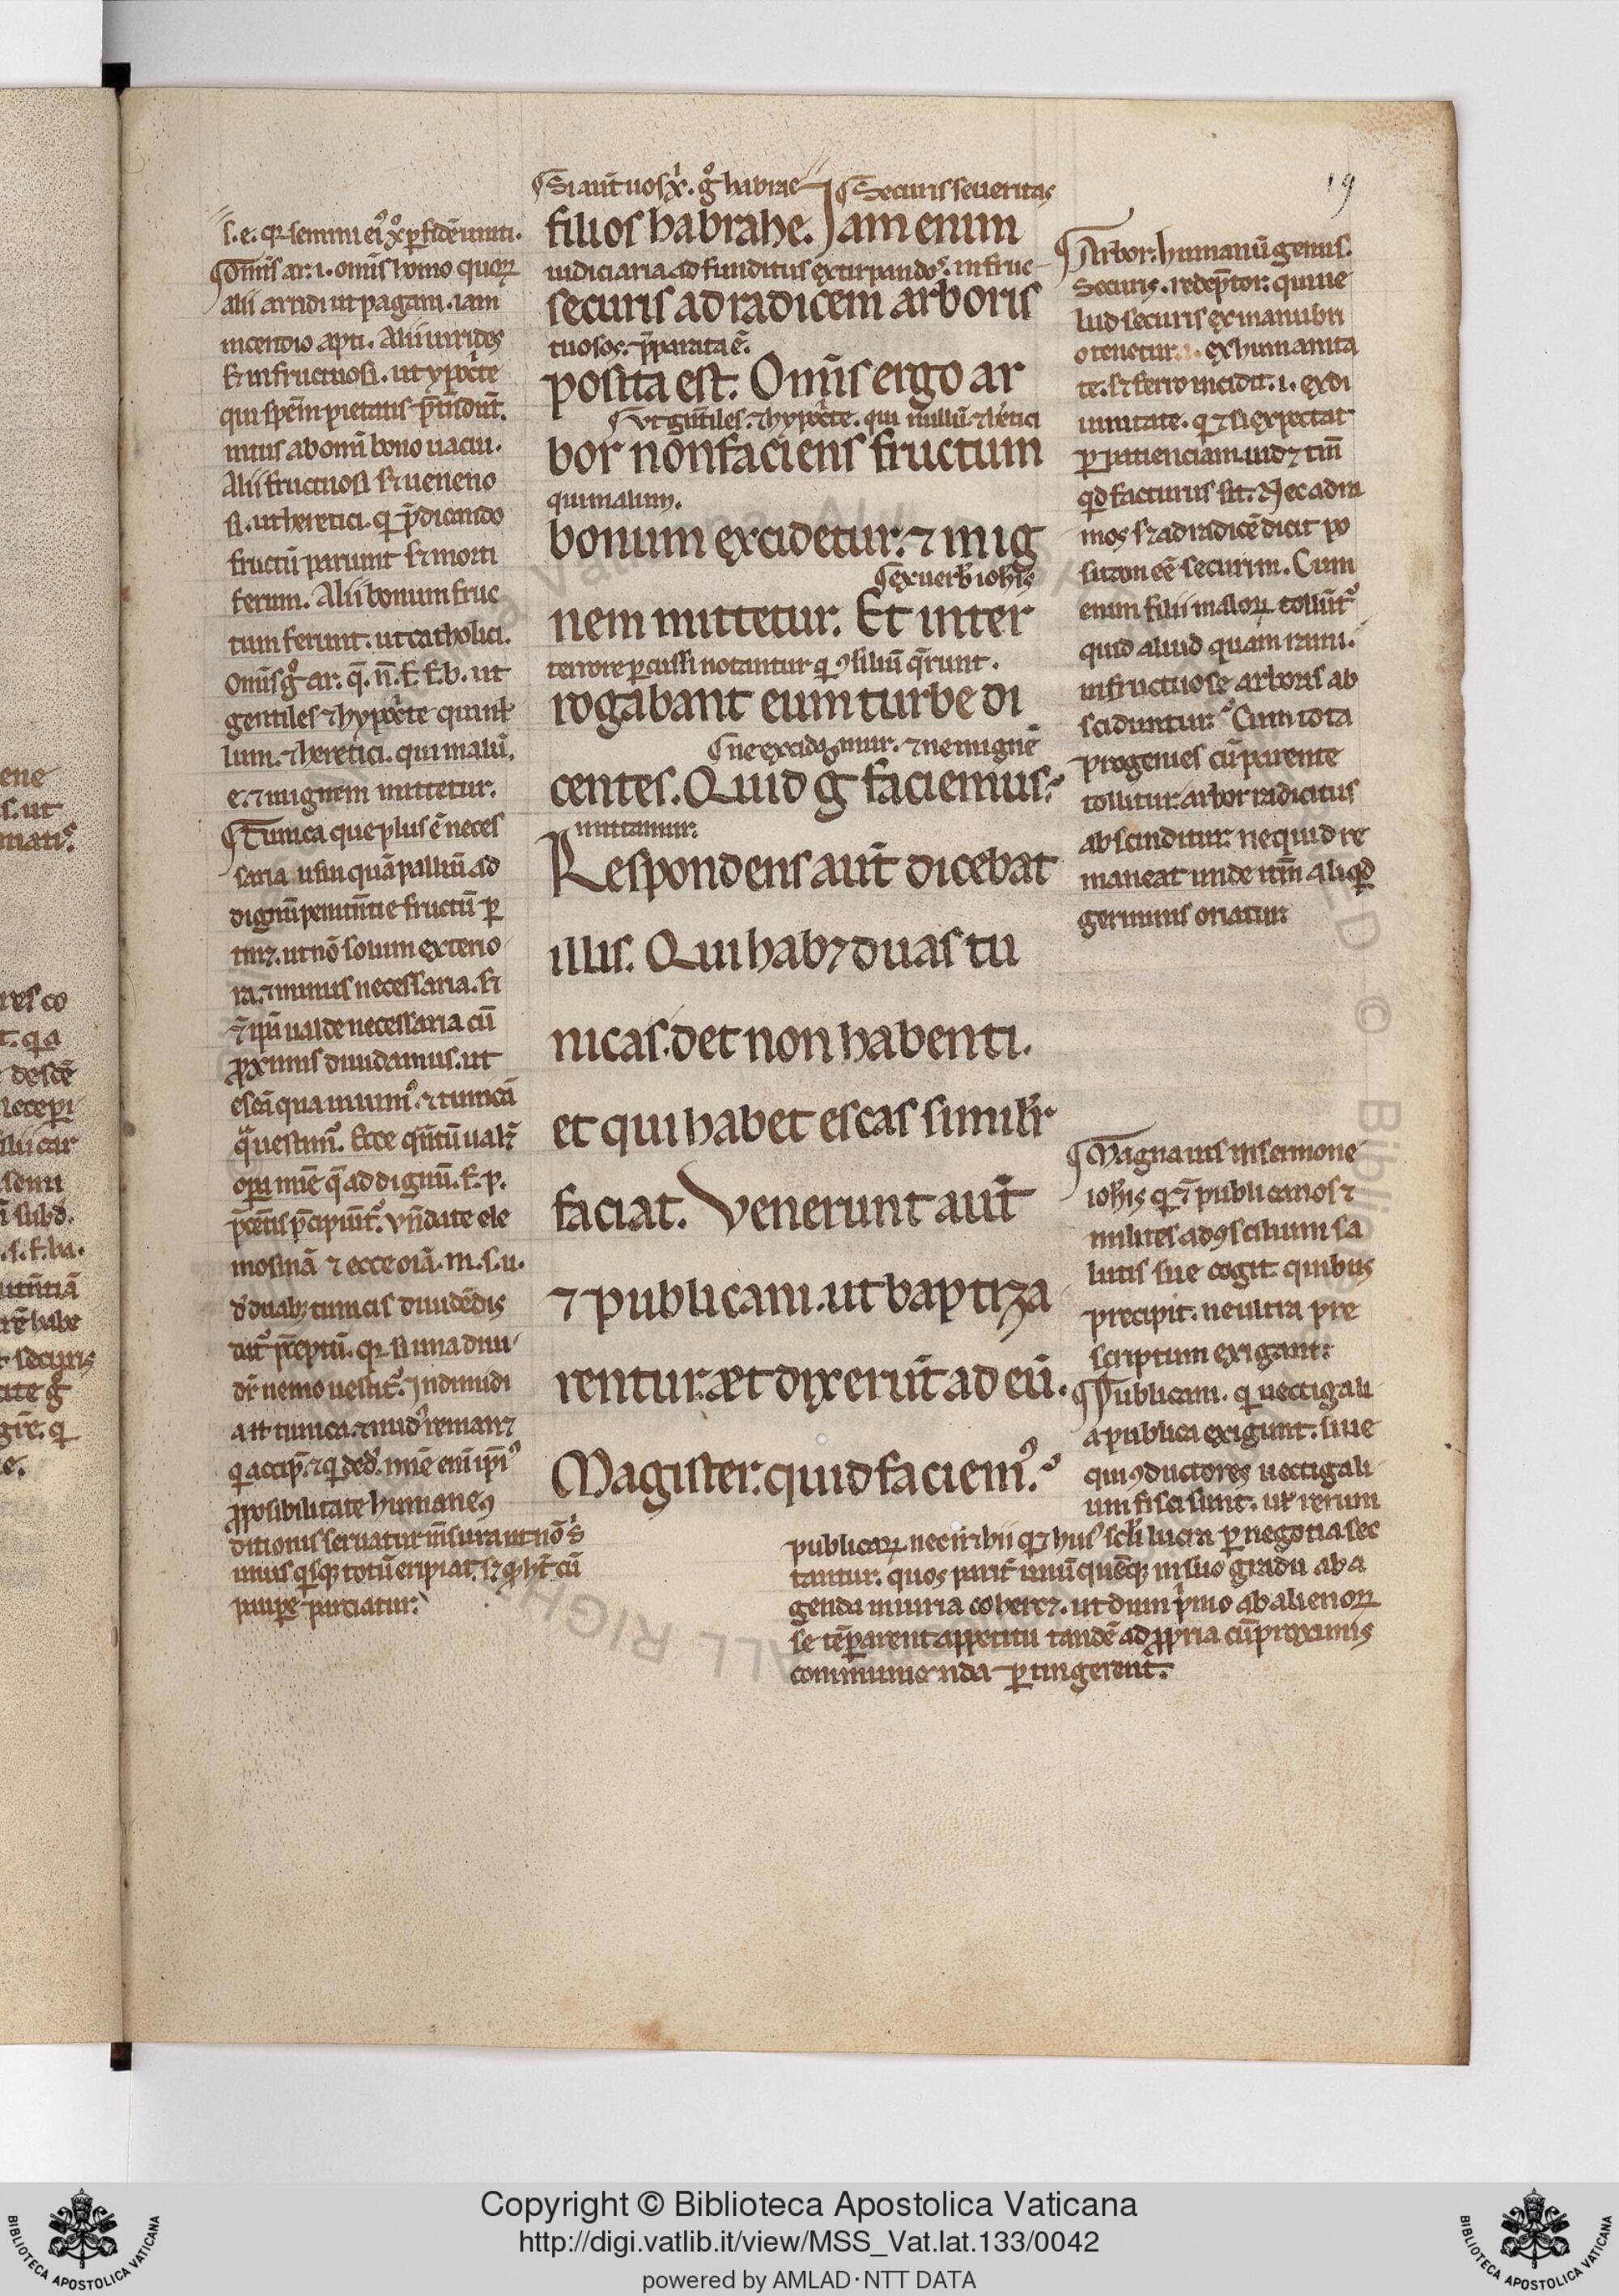 19
s. e. qr semini ei᾽ xo p fidē iuncti.
Om̄is ar: i. omīs homo quoꝝ
alii arridi ut pagani. iam
incendio apti. Alii uirides
sꝫ infructuosi. ut ypocte
qui spem pietatis p̄tendūt.
intus ab omī bono uacui.
Alii fructuosi sꝫ ueneno
si. ut heretici. q p̄dicando
fructū pariunt sꝫ morti
ferum. Alii bonum fruc
tum ferunt. ut catholici.
omīs gͦ ar. q̄. n̄. f. f. b. ut
gentiles ⁊ hypocte qui nl̄
lum. ⁊ heretici. qui malū.
e. ⁊ in ignem mittetur.
Tunica que plus ē neces
saria usui quā pallium ad
dignū penitn̄tie fructū p
tinꝫ. ut nō solum exterio
ra. ⁊ minus necessaria. sꝫ
⁊ ipsū ualde necessaria cū
ꝓximis diuidamus. ut
escā qua uiuim᾽. ⁊ tunicā
qua uestim᾽. Ecce qn̄tū ualꝫ
opa mīe q̄ ad dignū. f. p.
p̄ cet̄is p̄cipiūt᾽. Vn̄ date ele
mosinā ⁊ ecce oīa. m. s. u.
d᾽ duabꝫ tunicis diuidēdis
dat᾽ p̄ceptū. qr si una diui
dr̄ nemo uestit᾽. In dimidi
a n̄ tunica. ⁊ nud᾽ remanꝫ
q accip̄. ⁊ q ded᾽. mīe enī ip̄i᾽
ꝓ possibilitate humane ꝯ
ditionis seruatur m̄sura ut nō s᾽
unus qisqꝫ totū eripiat. sꝫ qͦ hꝫ cū
paupe parciatur.
Si aut̄ uos xi. gͦ habrae
Securis seueritas
filios habrahe. Iam enim
iudiciaria ad funditus extirpando᾽. infruc
securis ad radicem arboris
tuosos. p̄parata ē.
posita est. Omīs ergo ar
Vt gn̄tiles. ⁊ hypocte. qui nullū. ⁊ hr̄etici
bor non faciens fructum
qui malum.
bonum excidetur. ⁊ in ig
ex uerb᾽ ioh̄is
nem mittetur. Et inter
terrore percussi notantur q ꝯsiliū q̄runt.
rogabant eum turbe di
ne excidamur. ⁊ ne in ignē
centes. Quid gͦ faciemus.
mittamur.
Respondens aut̄ dicebat
illis. Qui habꝫ duas tu
nicas. det non habenti.
et qui habet escas similr̄
faciat. Venerunt aut̄
⁊ publicani. ut baptiza
rentur. æt dixerūt ad eū.
Magister. quid faciem᾽.
Arbor. humanū genus.
Securis. redeptor. qui ue
lud securis ex manubri
o tenetur. i. ex humanita
te. sꝫ ferro incidit. i. ex di
uinitate. q ⁊ si expectat
p patienciam. uidꝫ tn̄
qd facturus sit. Nec ad ra
mos sꝫ ad radicē dicit po
sitam eē securim. Cum
enim filii maloꝝ tollūt᾽.
quid aliud quam rami.
infructuose arboris ab
sciduntur. Cum tota
progenies cū parente
tollitur. arbor radicitus
abscinditur. ne quid re
maneat unde itm̄ aliqd
germinis oriatur.
Magna uis in sermone
ioh̄is q ⁊ publicanos ⁊
milites ad ꝯscilium sa
lutis sue cogit. quibus
precipit. ne ultra pre
scriptum exigant.
Publicani. q uectigali
a publica exigunt. siue
qui ꝯductores uectigali
um fisci sunt. uꝉ rerum
publicaꝝ. nec n̄ ⁊ hii q ⁊ hui᾽ sclī lucra p negotia sec
tantur. quos parit̄ unū quēqꝫ in suo gradu ab a
genda iniuria cohercꝫ. ut dum p̄mo ab alienoꝝ
se tēparent appetitu tandē ad ꝓpria cū proximis
communicanda pertingerent.
Copyright © Biblioteca Apostolica Vaticana
http://digi.vatlib.it/view/MSS_Vat.lat.133/0042
powered by AMLAD·NTT DATA
BIBLIOTECA APOSTOLICA VATICANA
BIBLIOTECA APOSTOLICA VATICANA